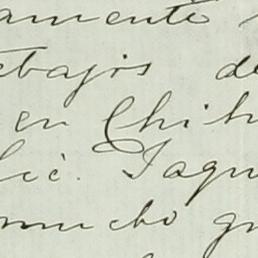 amente
ebajos de
en Chih
lic. Tagu
mucho gu